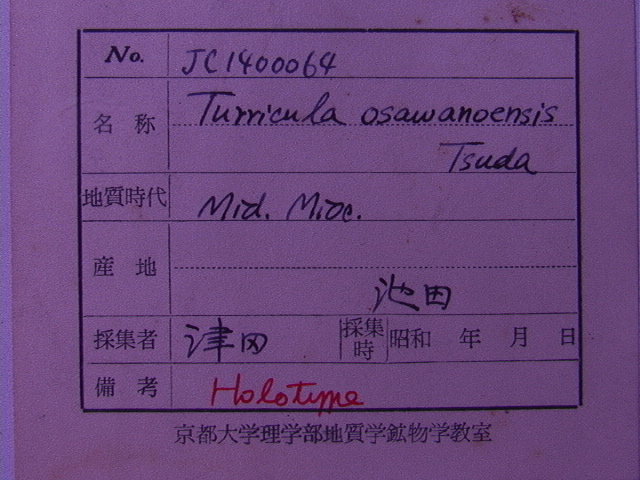 No. JC1400064
名称 Turricula osawanoensis
Tsuda
地質時代 Mid. Mioc.
産地
池田
採集者 津田 採集時 昭和 年 月 日
備考 Holotype
京都大学理学部地質学鉱物学教室